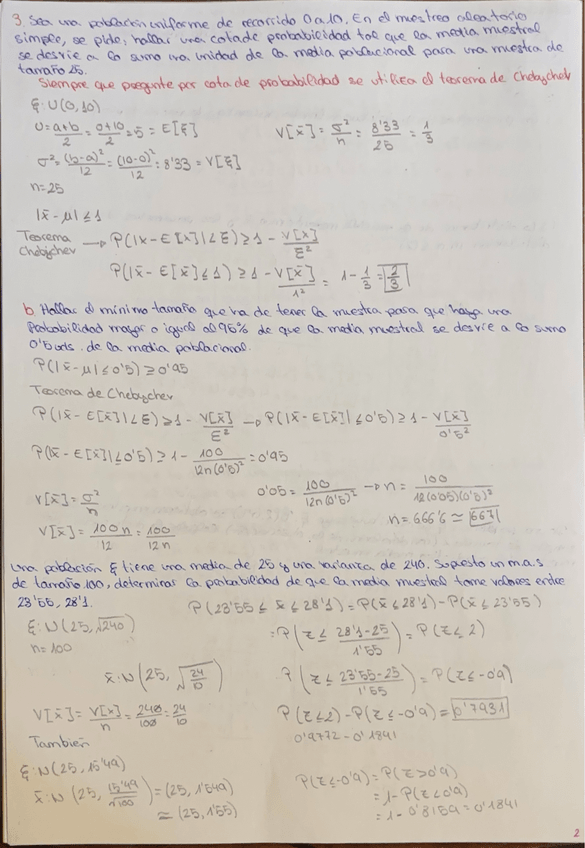 3. Sea una población uniforme de recorrido 0 a 10. En el muestreo aleatorio
simple, se pide, hallar una cota de probabilidad tal que la media muestral
se desvíe a lo sumo una unidad de la media poblacional para una muestra de
tamaño 25.
Siempre que pregunte por cota de probabilidad se utiliza el teorema de Chebychev
ξ: U(0,10)
U = a+b/2 = 0+10/2 = 5 = E[ξ]
V[x̄] = σ²/n = 8'33/25 = 1/3
σ² = (b-a)²/12 = (10-0)²/12 = 8'33 = V[ξ]
n=25
|x̄ - μ| ≤ 1
Teorema Chebychev → P(|x - E[x]| < ε) ≥ 1 - V[x]/ε²
P(|x̄ - E[x̄] ≤ 1) ≥ 1 - V[x̄]/1² = 1 - 1/3 = 2/3
b. Hallar el mínimo tamaño que ha de tener la muestra para que haya una
probabilidad mayor o igual al 95% de que la media muestral se desvíe a lo sumo
0'5 uds. de la media poblacional.
P(|x̄ - μ| ≤ 0'5) ≥ 0'95
Teorema de Chebychev
P(|x̄ - E[x̄]| < ε) ≥ 1 - V[x̄]/ε² → P(|x̄ - E[x̄]| ≤ 0'5) ≥ 1 - V[x̄]/0'5²
P(|x̄ - E[x̄]| ≤ 0'5) ≥ 1 - 100/12n(0'5)² = 0'95
0'05 = 100/12n(0'5)² → n = 100/12(0'05)(0'5)²
V[x̄] = σ²/n
n = 666'6 ≃ 667
V[x̄] = 100n/12 = 100/12n
Una población ξ tiene una media de 25 y una varianza de 240. Supuesto un m.a.s
de tamaño 100, determinar la probabilidad de que la media muestral tome valores entre
23'55, 28'1.
P(23'55 ≤ x̄ ≤ 28'1) = P(x̄ ≤ 28'1) - P(x̄ ≤ 23'55)
ξ: N(25, √240)
n=100
= P(z ≤ 28'1-25/1'55) = P(z ≤ 2)
x̄: N(25, √24/10)
P(z ≤ 23'55-25/1'55) = P(z ≤ -0'9)
V[x̄] = V[x]/n = 240/100 = 24/10
P(z≤2) - P(z ≤ -0'9) = 0'7931
También
0'9772 - 0'1841
ξ: N(25, 15'49)
x̄: N(25, 15'49/√100) = (25, 1'549)
≃ (25, 1'55)
P(z ≤ -0'9) = P(z > 0'9)
= 1 - P(z < 0'9)
= 1 - 0'8159 = 0'1841
2